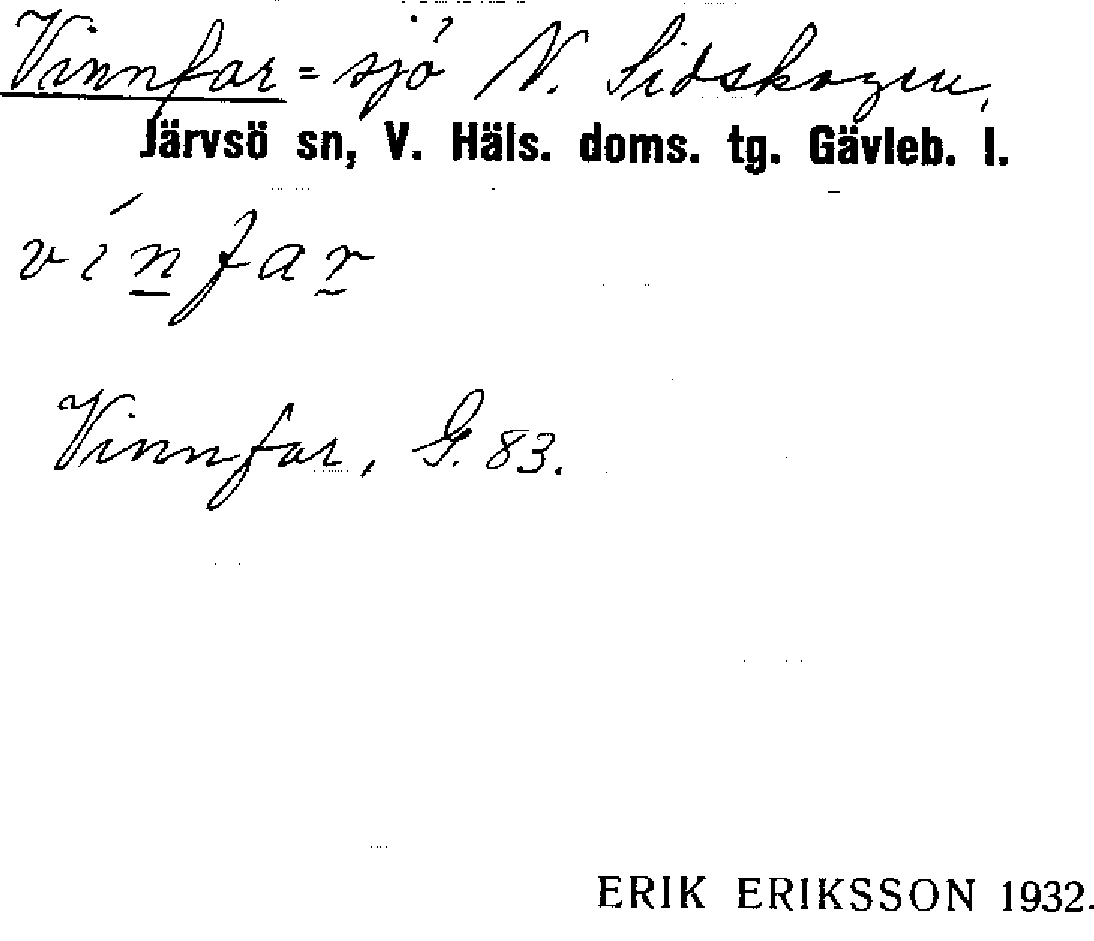 Vinnfar = sjö N. Sidskogen,
Järvsö sn, V. Häls. doms. tg. Gävleb. l.
vínfar
Vinnfar, G. 83.
ERIK ERIKSSON 1932.